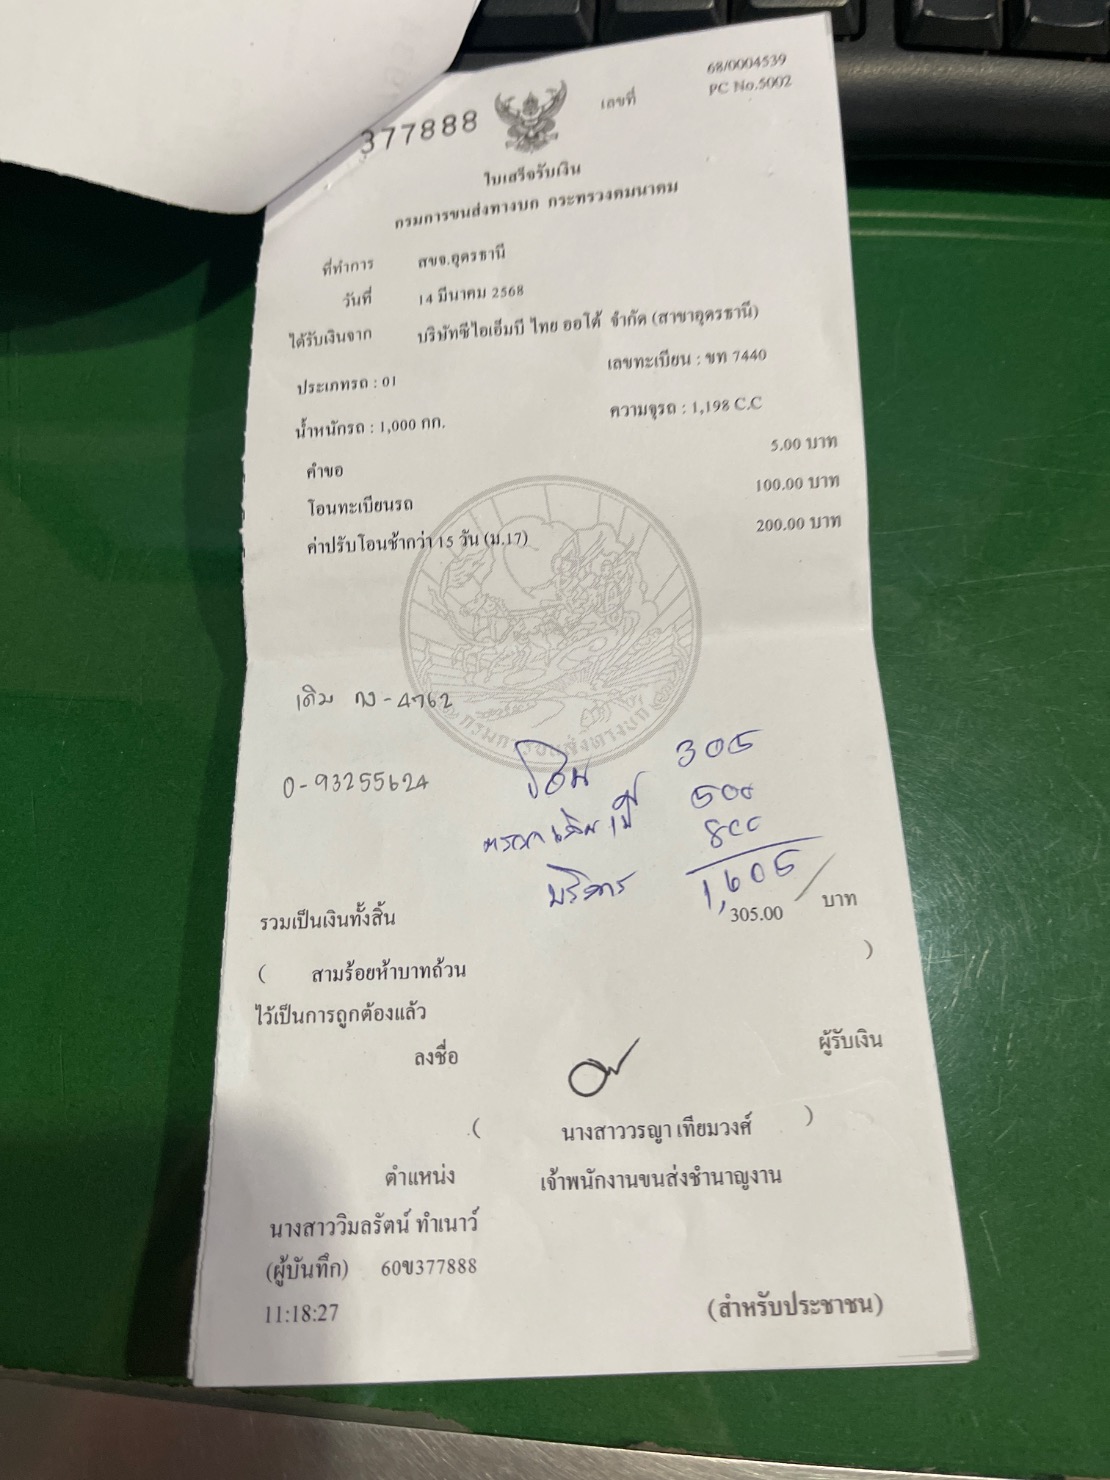 68/0004539
377888 เลขที่ PC No.5002
ใบเสร็จรับเงิน
กรมการขนส่งทางบก กระทรวงคมนาคม
ที่ทำการ สขจ.อุดรธานี
วันที่ 14 มีนาคม 2568
ได้รับเงินจาก บริษัทซีไอเอ็มบี ไทย ออโต้ จำกัด (สาขาอุดรธานี)
ประเภทรถ : 01 เลขทะเบียน : ขท 7440
น้ำหนักรถ : 1,000 กก. ความจุรถ : 1,198 C.C
คำขอ 5.00 บาท
โอนทะเบียนรถ 100.00 บาท
ค่าปรับโอนช้ากว่า 15 วัน (ม.17) 200.00 บาท
เดิม กง-4762
กรมการขนส่งทางบก
0-93255624
โอน 305
500
800
บริการ 1,605
รวมเป็นเงินทั้งสิ้น 305.00 บาท
( สามร้อยห้าบาทถ้วน )
ไว้เป็นการถูกต้องแล้ว
ลงชื่อ ผู้รับเงิน
( นางสาววรญา เทียมวงศ์ )
ตำแหน่ง เจ้าพนักงานขนส่งชำนาญงาน
นางสาววิมลรัตน์ ทำเนาว์
(ผู้บันทึก) 60ข377888
11:18:27 (สำหรับประชาชน)